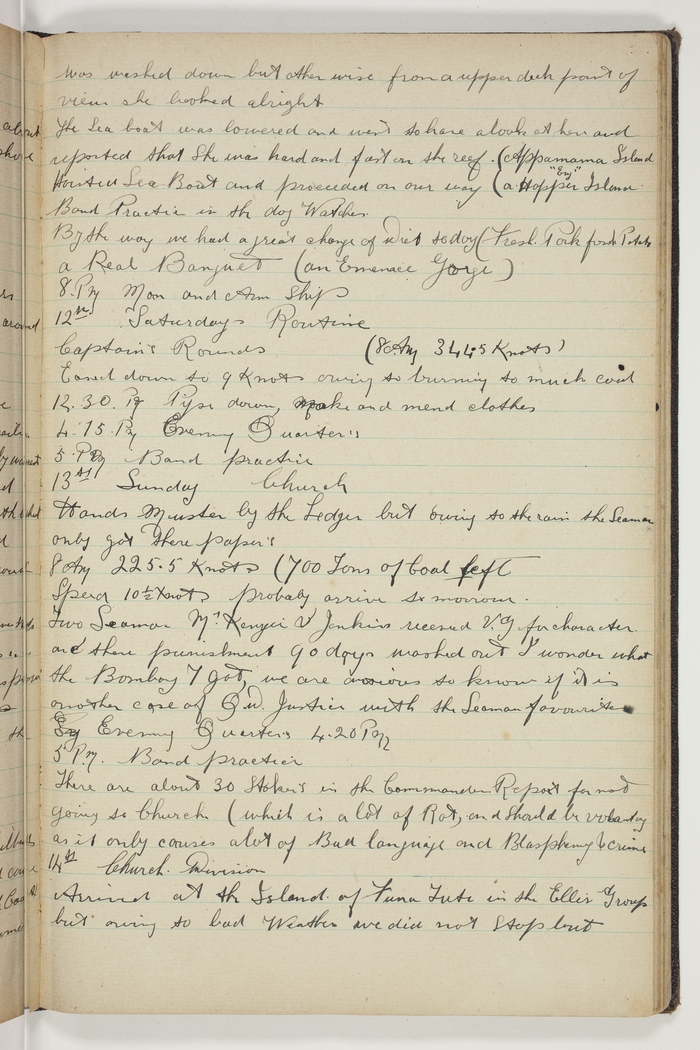 was washed down but other wise from a upper deck point of
view she looked alright
The Sea boat was lowered and went to have a look at her and
reported that She was hard and fast on the reef. (Appamama Island
Hoisted Sea Boat and proceeded on our way (a Hopper Island
Band Practice in the dog Watches.
By the way we had a great change of diet today (Fresh Pork fresh Potats
a Real Banquet (an Emence Gorge)
8. PM Man and Arm Ship
12th Saturdays Routine
Captain's Rounds (8AM 344.5 Knots)
Eased down to 9 Knots owing to burning to much coal
12.30. PM Pipe down, make and mend clothes
4.15. PM Evening Quarter's
5. PM Band practice
13th Sunday Church
Hands Muster by the Ledger but owing to the rain the Seaman
only got there paper's
8 AM 225.5 Knots (700 Tons of Coal left
Speed 10½ Knots probably arrive tomorrow.
Two Seaman Mc Kenzie & Jenkins received V.G for character
and there punishment 90 days washed out I wonder what
the Bombay 7 got, we are anxious to know if it is
another case of Justice with the Seaman favourite
Evening Quarters 4.20 PM
5 PM. Band practice
There are about 30 Stokers in the Commanders Report for not
going to Church (which is a lot of Rot, and should be voluntary
as it only causes a lot of Bad language and Blasphemy & crime
14th Church Division
Arrived at the Island of Funa Futi in the Ellis Group
but owing to bad Weather we did not Stop but